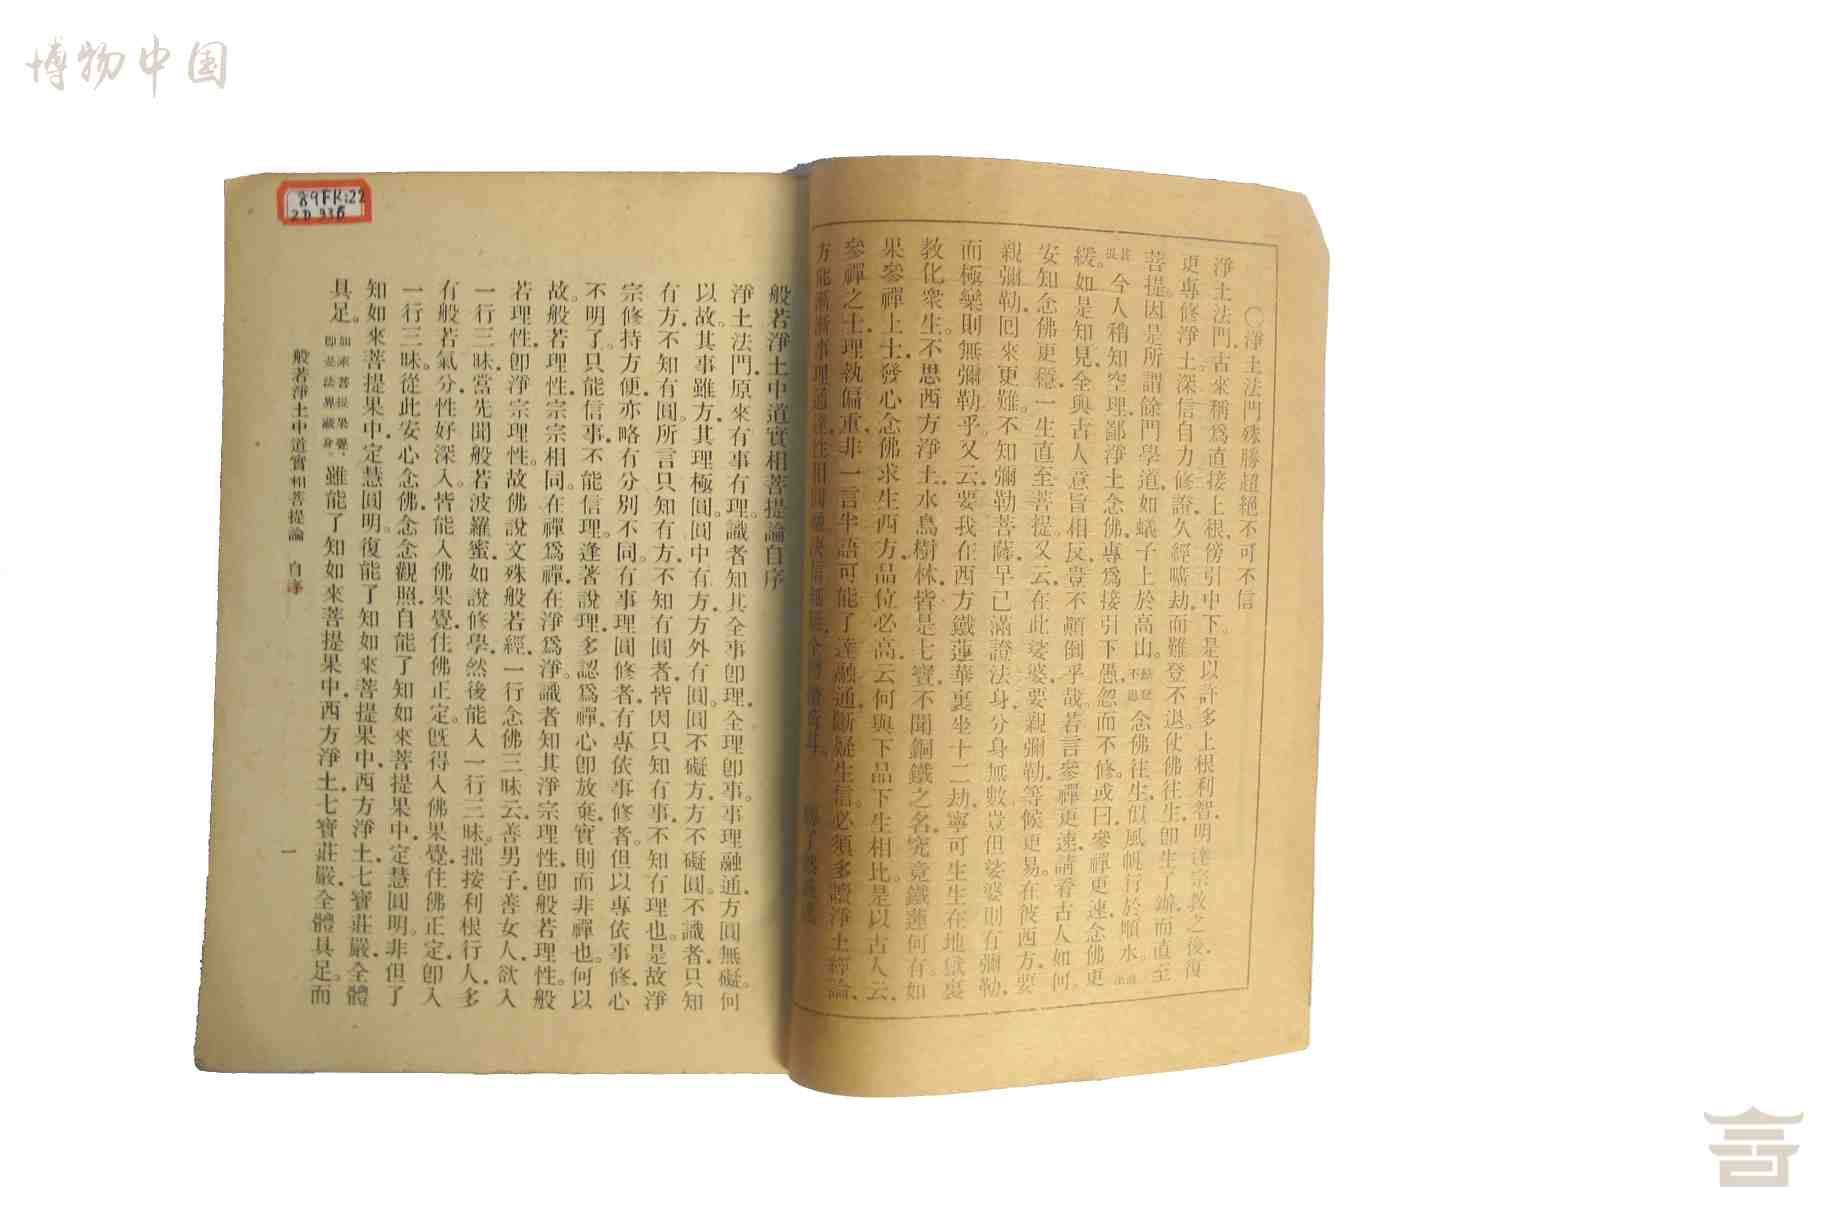 博物中国
〇淨土法門殊勝超絕不可不信
淨土法門古來稱爲直接上根傍引中下。是以許多上根利智明達宗教之後復
更專修淨土。深信自力修證久經曠劫而難登不退。仗佛往生卽生了辦而直至
菩提。因是所謂餘門學道如蟻子上於高山。念佛往生似風帆行於順水。
菩提今人稍知空理鄙淨土念佛專爲接引下愚忽而不修。或曰參禪更速念佛更
緩。如是知見全與古人意旨相反豈不顚倒乎哉。若言參禪更速請看古人如何。
安知念佛更穩一生直至菩提。又云在此娑婆要親彌勒等候更易。在彼西方要
親彌勒回來更難。不知彌勒菩薩早已滿證法身分身無數豈但娑婆則有彌勒
而極樂則無彌勒乎。又云要我在西方鐵蓮華裏坐十二劫寧可生生在地獄裏
敎化衆生。不思西方淨土水鳥樹林皆是七寶不聞銅鐵之名究竟鐵蓮何有。如
果參禪上士發心念佛求生西方品位必高云何與下品下生相比。是以古人云
參禪之士理執偏重非一言半語可能了達融通斷疑生信。必須多讀淨土經論
方能漸漸事理通達性相圓融決信無疑
89FK:22
ZD 336
般若淨土中道實相菩提論自序
淨土法門原來有事有理。識者知其全事卽理全理卽事。事理融通方圓無礙。何
以故。其事雖方其理極圓。圓中有方方外有圓。圓不礙方方不礙圓。不識者只知
有方不知有圓。所言只知有方不知有圓者皆因只知有事不知有理也。是故淨
宗修持方便亦略有分別不同。有事理圓修者有專依事修者。但以專依事修心
不明了。只能信事不能信理。逢著說理多認爲禪心卽放棄實則而非禪也。何以
故。般若理性宗宗相同。在禪爲禪在淨爲淨。識者知其淨宗理性卽般若理性。般
若理性卽淨宗理性。故佛說文殊般若經一行念佛三昧云善男子善女人欲入
一行三昧當先聞般若波羅蜜如說修學然後能入一行三昧。拙按利根行人多
有般若氣分性好深入。皆能入佛果覺住佛正定。旣得入佛果覺住佛正定卽入
一行三昧。從此安心念佛念念觀照自能了知如來菩提果中定慧圓明。非但了
知如來菩提果中定慧圓明。復能了知如來菩提果中西方淨土七寶莊嚴全體
具足。如來菩提果覺卽是法界藏身。雖能了知如來菩提果中西方淨土七寶莊嚴全體具足。而
般若淨土中道實相菩提論 自序
一